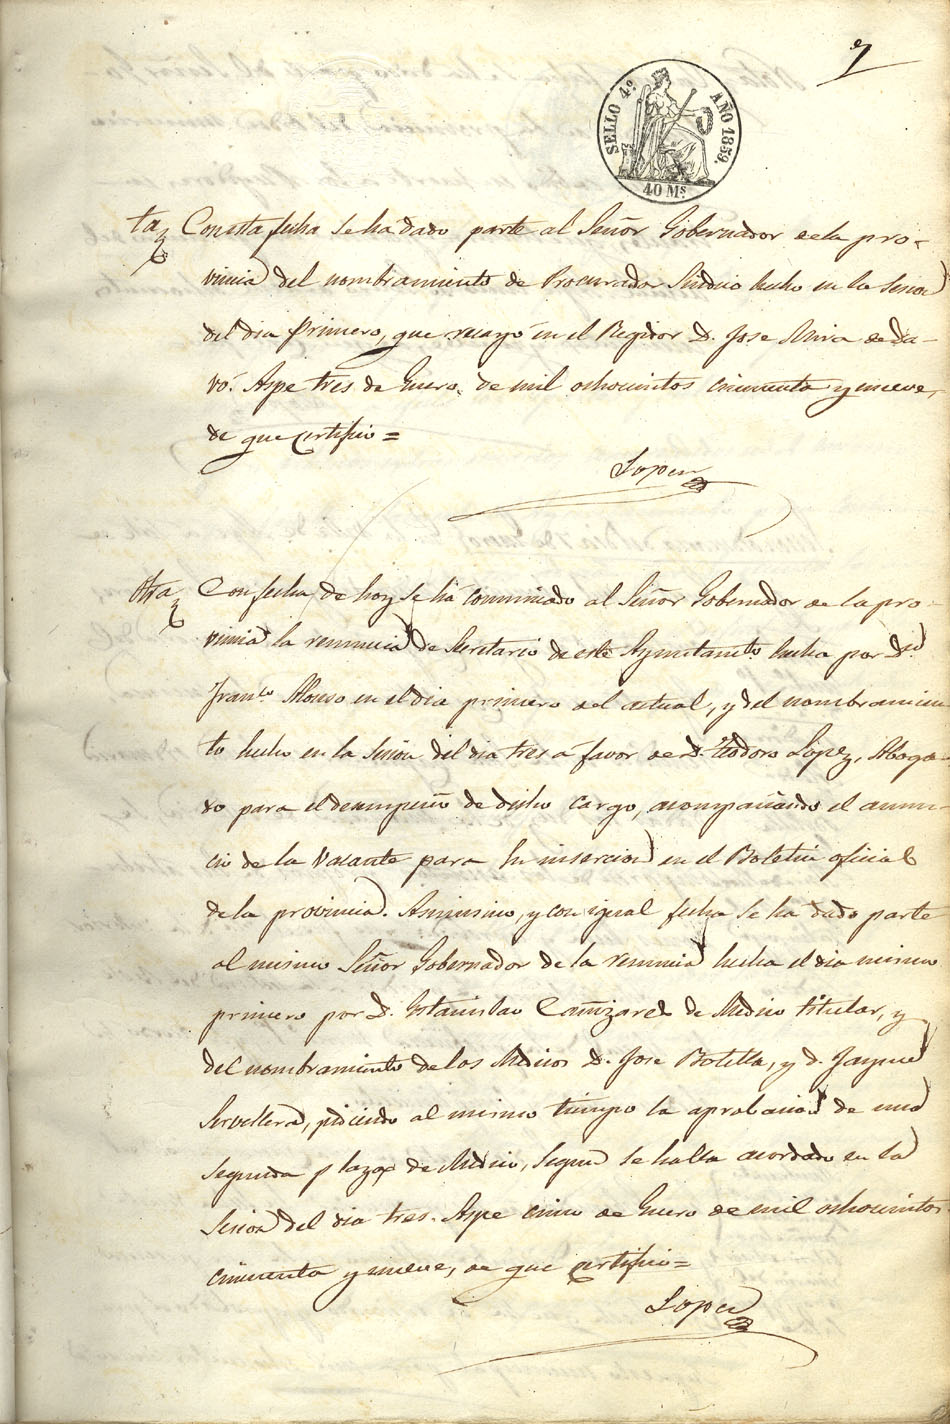 7
SELLO 4º AÑO 1859.
40 Ms
ta Con esta fecha se ha dado parte al Señor Gobernador de la pro-
vincia del nombramiento de Procurador Sindico hecho en la Sesion
del dia primero, que recayo en el Regidor D. Jose Mira de Da-
vó. Aspe tres de Enero de mil ochocientos cincuenta y nueve,
de que certifico=
Lopez
Otra Con fecha de hoy se ha comunicado al Señor Gobernador de la pro-
vincia la renuncia de Secretario de este Ayuntamto. hecha por Dn.
Franco. Alonso en el dia primero del actual, y del nombramien-
to hecho en la Sesion del dia tres a favor de D. Teodoro Lopez, Aboga-
do para el desempeño de dicho cargo, acompañando el anun-
cio de la Vacante para su insercion en el Boletin oficial
de la provincia. Asimismo, y con igual fecha se ha dado parte
al mismo Señor Gobernador de la renuncia hecha el dia mismo
primero por D. Estanislao Cañizares de Medico titular, y
del nombramiento de los Medicos D. Jose Botella, y D. Jayme
Servellera, pidiendo al mismo tiempo la aprobacion de una
segunda plaza de Medico, segun se halla acordado en la
Sesion del dia tres. Aspe cinco de Enero de mil ochocientos
cincuenta y nueve, de que certifico=
Lopez